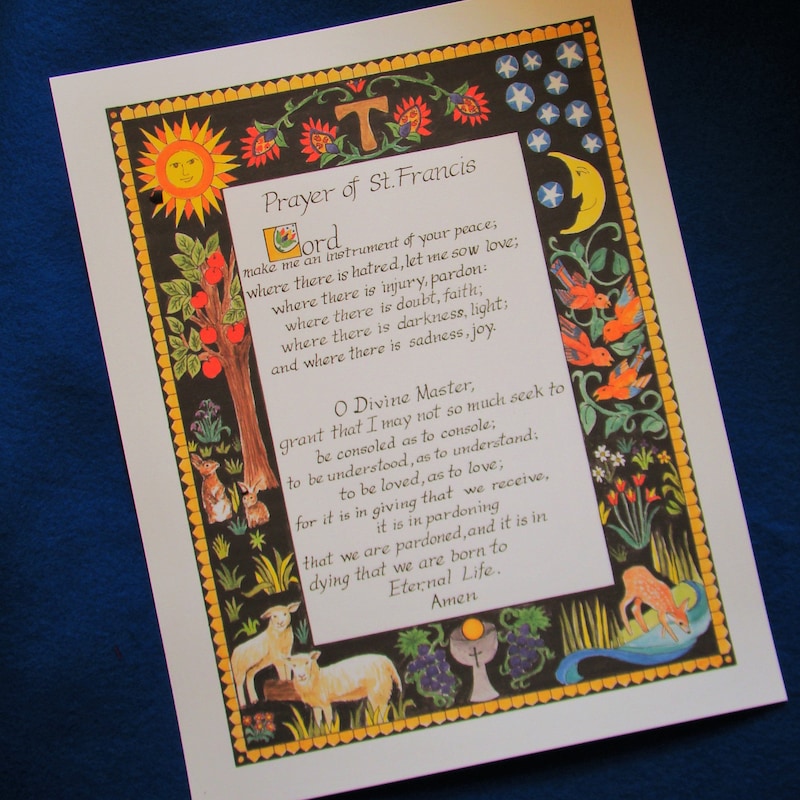 Prayer of St. Francis
Lord
make me an instrument of your peace;
where there is hatred, let me sow love;
where there is injury, pardon:
where there is doubt, faith;
where there is darkness, light;
and where there is sadness, joy.
O Divine Master,
grant that I may not so much seek to
be consoled as to console;
to be understood, as to understand;
to be loved, as to love;
for it is in giving that we receive,
it is in pardoning
that we are pardoned, and it is in
dying that we are born to
Eternal Life.
Amen